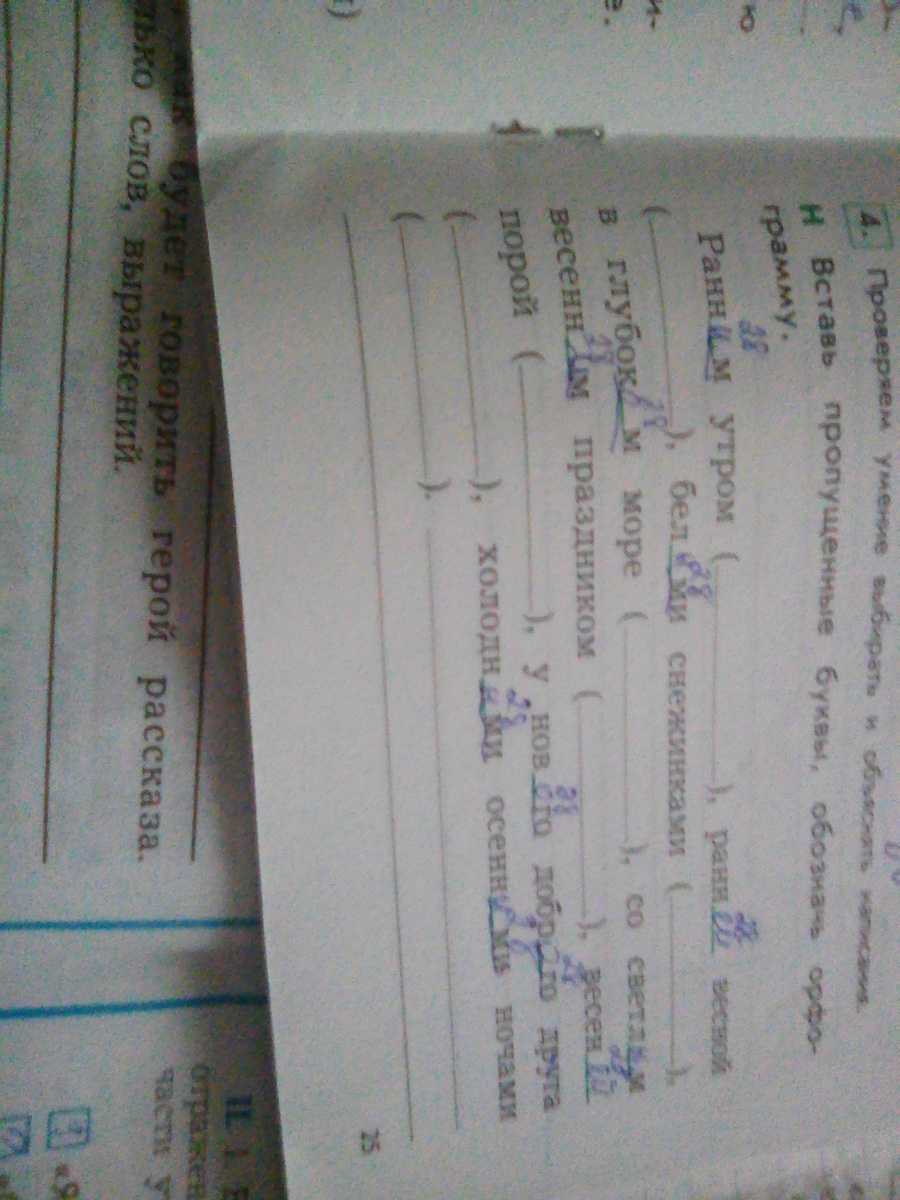 4. Проверяем умение выбирать и объяснять написания.
Н Вставь пропущенные буквы, обозначь орфо-
грамму.
28 28
Ранним утром ( ), ранней весной
28
( ), белыми снежинками ( ),
28 28
в глубоком море ( ), со светлым
28 28
весенним праздником ( ), весенней
28 28
порой ( ), у нового доброго друга
28 28
( ), холодными осенними ночами
( ).
25
будет говорить герой рассказа.
слов, выражений.
II. 1.
части у